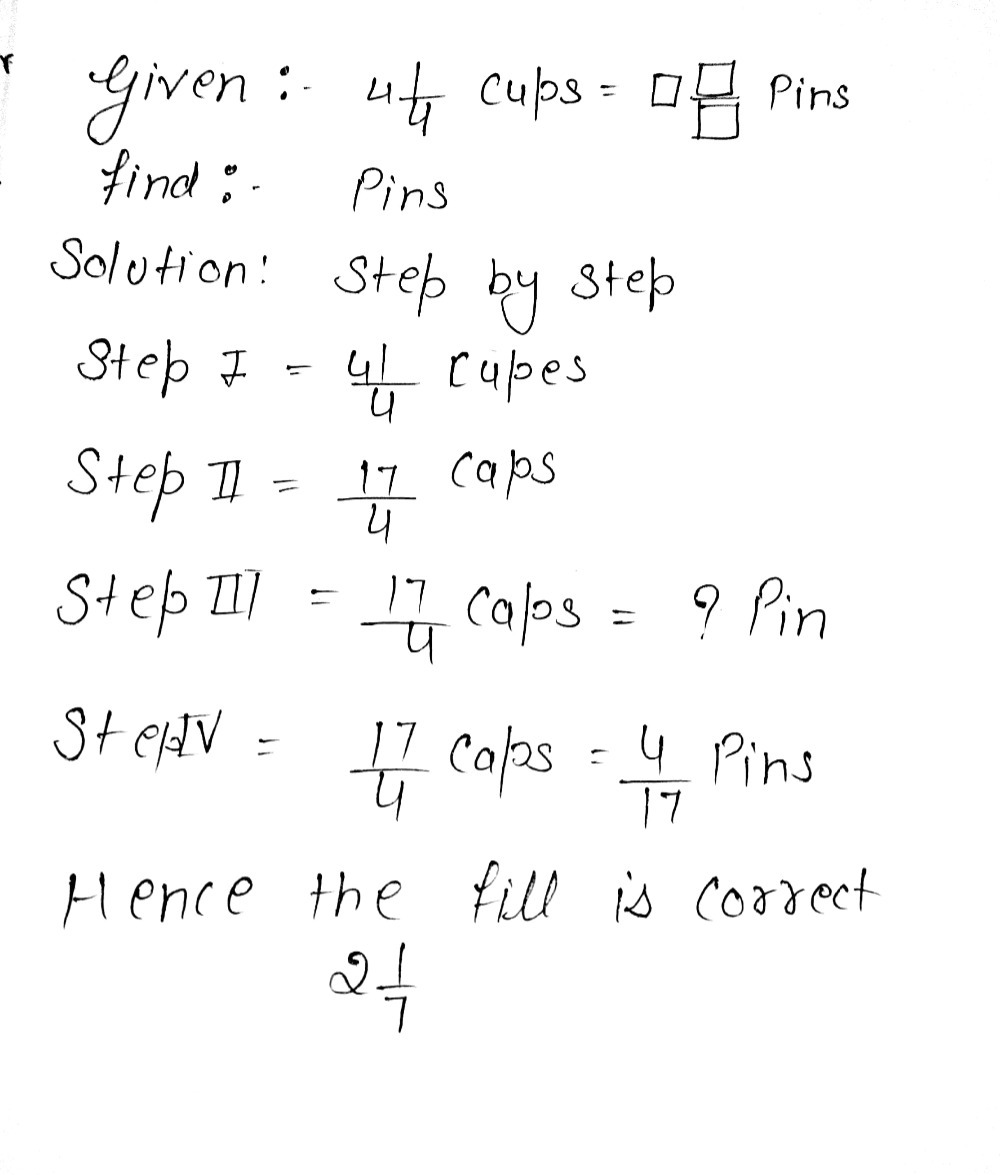 Given :- 4 1/4 Cups = □ □/□ Pins
find :- Pins
Solution! Step by step
Step I = 4 1/4 Cupes
Step II = 17/4 Caps
Step III = 17/4 Caps = ? Pin
Step IV = 17/4 Caps = 4/17 Pins
Hence the fill is correct
2 1/7